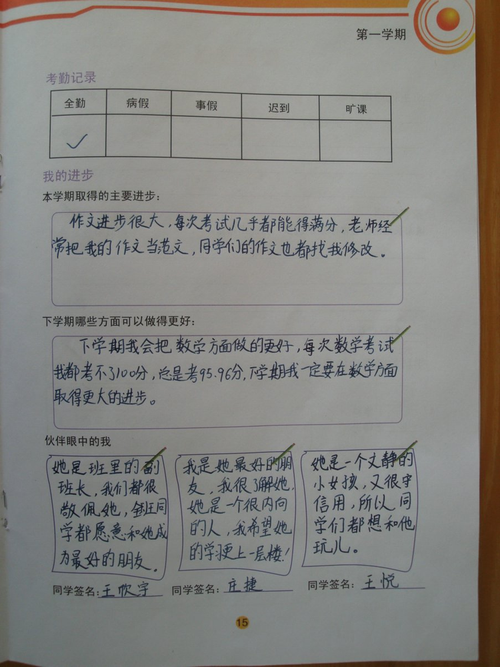 第一学期
考勤记录
全勤 病假 事假 迟到 旷课
✓
我的进步
本学期取得的主要进步:
作文进步很大,每次考试几乎都能得满分,老师经
常把我的作文当范文,同学们的作文也都找我修改。
下学期哪些方面可以做得更好:
下学期我会把数学方面做的更好,每次数学考试
我都考不了100分,总是考95.96分,下学期我一定要在数学方面
取得更大的进步。
伙伴眼中的我
她是班里的副
班长,我们都很
敬佩她,全班同
学都愿意和她成
为最好的朋友。
同学签名:王歆宇
我是她最好的朋
友,我很了解她,
她是一个很内向
的人,我希望她
的学习更上一层楼!
同学签名:庄捷
她是一个文静的
小女孩,又很守
信用,所以同
学们都想和他
玩儿。
同学签名:王悦
15